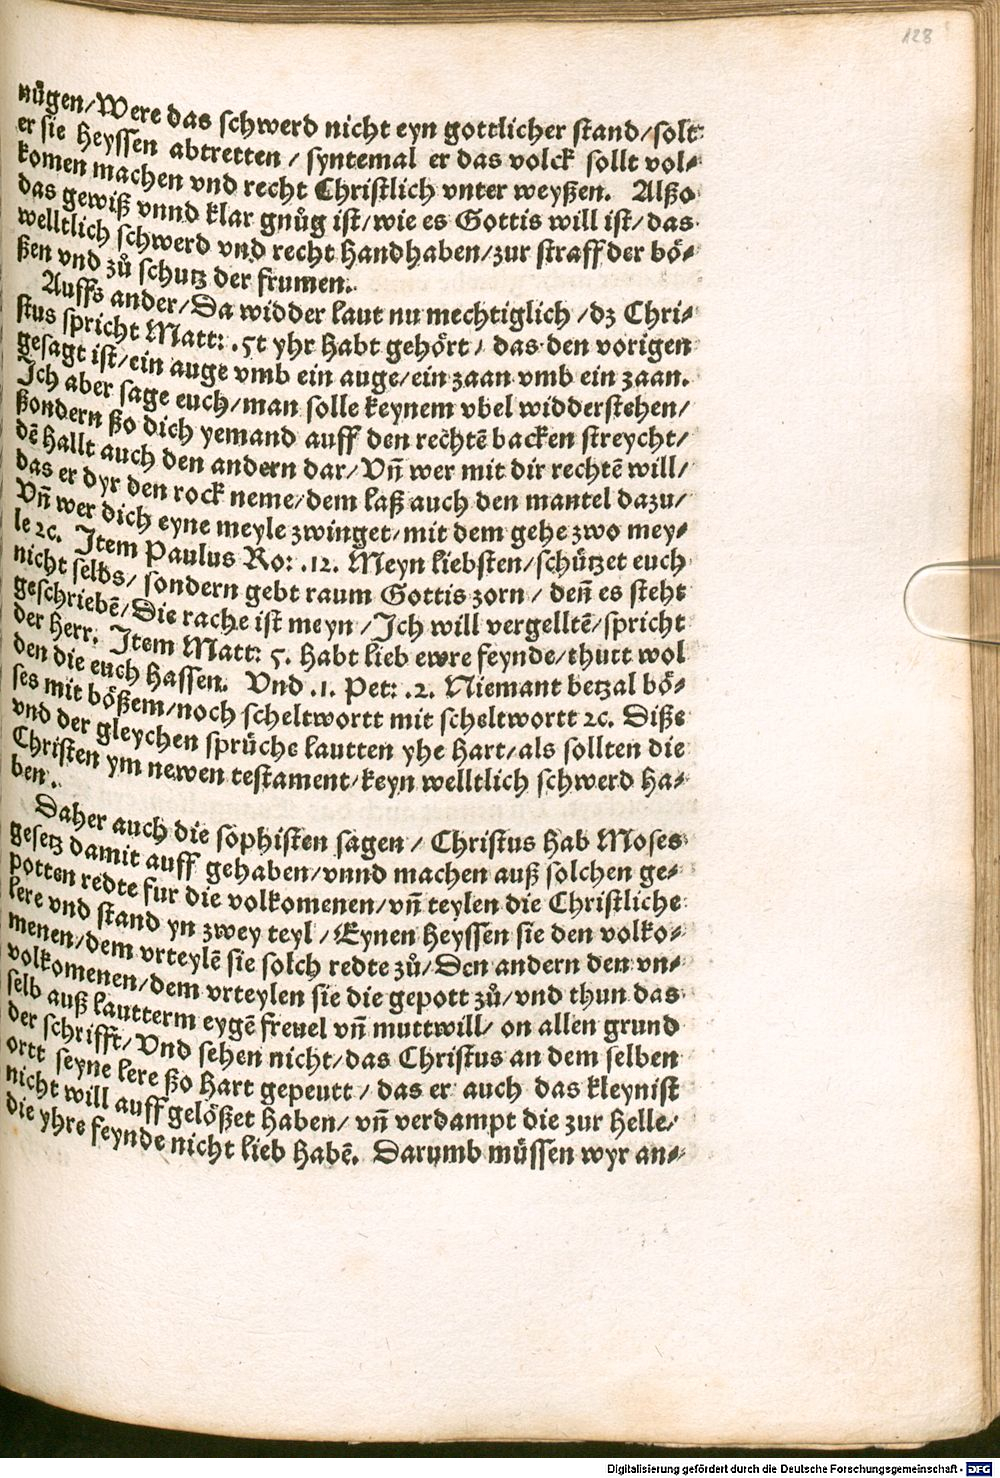 128
nůgen/Were das schwerd nicht eyn gottlicher stand/solt
er sie heyssen abtretten / syntemal er das volck sollt vol⸗
komen machen vnd recht Christlich vnter weyßen. Alßo
das gewiß vnnd klar gnůg ist/wie es Gottis will ist/das
welltlich schwerd vnd recht handhaben/zur straff der bö⸗
ßen vnd zů schutz der frumen.
Auffs ander/Da widder laut nu mechtiglich /dz Chri⸗
stus spricht Matt: .5t yhr habt gehört / das den vorigen
gesagt ist/ein auge vmb ein auge/ein zaan vmb ein zaan.
Ich aber sage euch/man solle keynem vbel widderstehen/
ßondern ßo dich yemand auff den rechtē backen streycht/
dē hallt auch den andern dar/Vñ wer mit dir rechtē will/
das er dyr den rock neme/dem laß auch den mantel dazu/
Vñ wer dich eyne meyle zwinget/mit dem gehe zwo mey⸗
le ꝛc. Item Paulus Ro: .12. Meyn liebsten/schützet euch
nicht selbs/ sondern gebt raum Gottis zorn / deñ es steht
geschriebē/Die rache ist meyn /Ich will vergelltē/spricht
der Herr. Item Matt: 5. habt lieb ewre feynde/thutt wol
den die euch hassen. Vnd .1. Pet: .2. Niemant betzal bö⸗
ses mit bößem/noch scheltwortt mit scheltwortt ꝛc. Diße
vnd der gleychen sprüche lautten yhe hart/als sollten die
Christen ym newen testament/keyn welltlich schwerd ha⸗
ben.
Daher auch die sophisten sagen / Christus hab Moses
gesetz damit auff gehaben/vnnd machen auß solchen ge⸗
potten redte fur die volkomenen/vñ teylen die Christliche
lere vnd stand yn zwey teyl / Eynen heyssen sie den volko⸗
menen/dem vrteylē sie solch redte zů/Den andern den vn⸗
volkomenen/dem vrteylen sie die gepott zů/vnd thun das
selb auß lautterm eygē freuel vñ muttwill/ on allen grund
der schrifft/Vnd sehen nicht/das Christus an dem selben
ortt seyne lere ßo hart gepeutt / das er auch das kleynist
nicht will auff gelößet haben/ vñ verdampt die zur helle/
die yhre feynde nicht lieb habē. Darumb müssen wyr an⸗
Digitalisierung gefördert durch die Deutsche Forschungsgemeinschaft - DFG